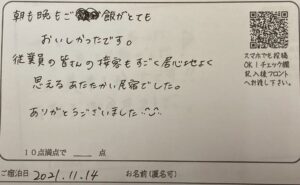 朝も晩もご飯がとても
おいしかったです。
従業員の皆さんの接客もすごく居心地よく
思えるあたたかい民宿でした。
ありがとうございました
スマホでも投稿
OK！チェック欄
記入後フロント
へお渡し下さい。
10点満点で 点
ご宿泊日 2021.11.14 お名前(匿名可)